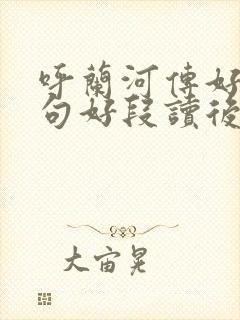 呼蘭河傳好
句好段讀後
大宙晃